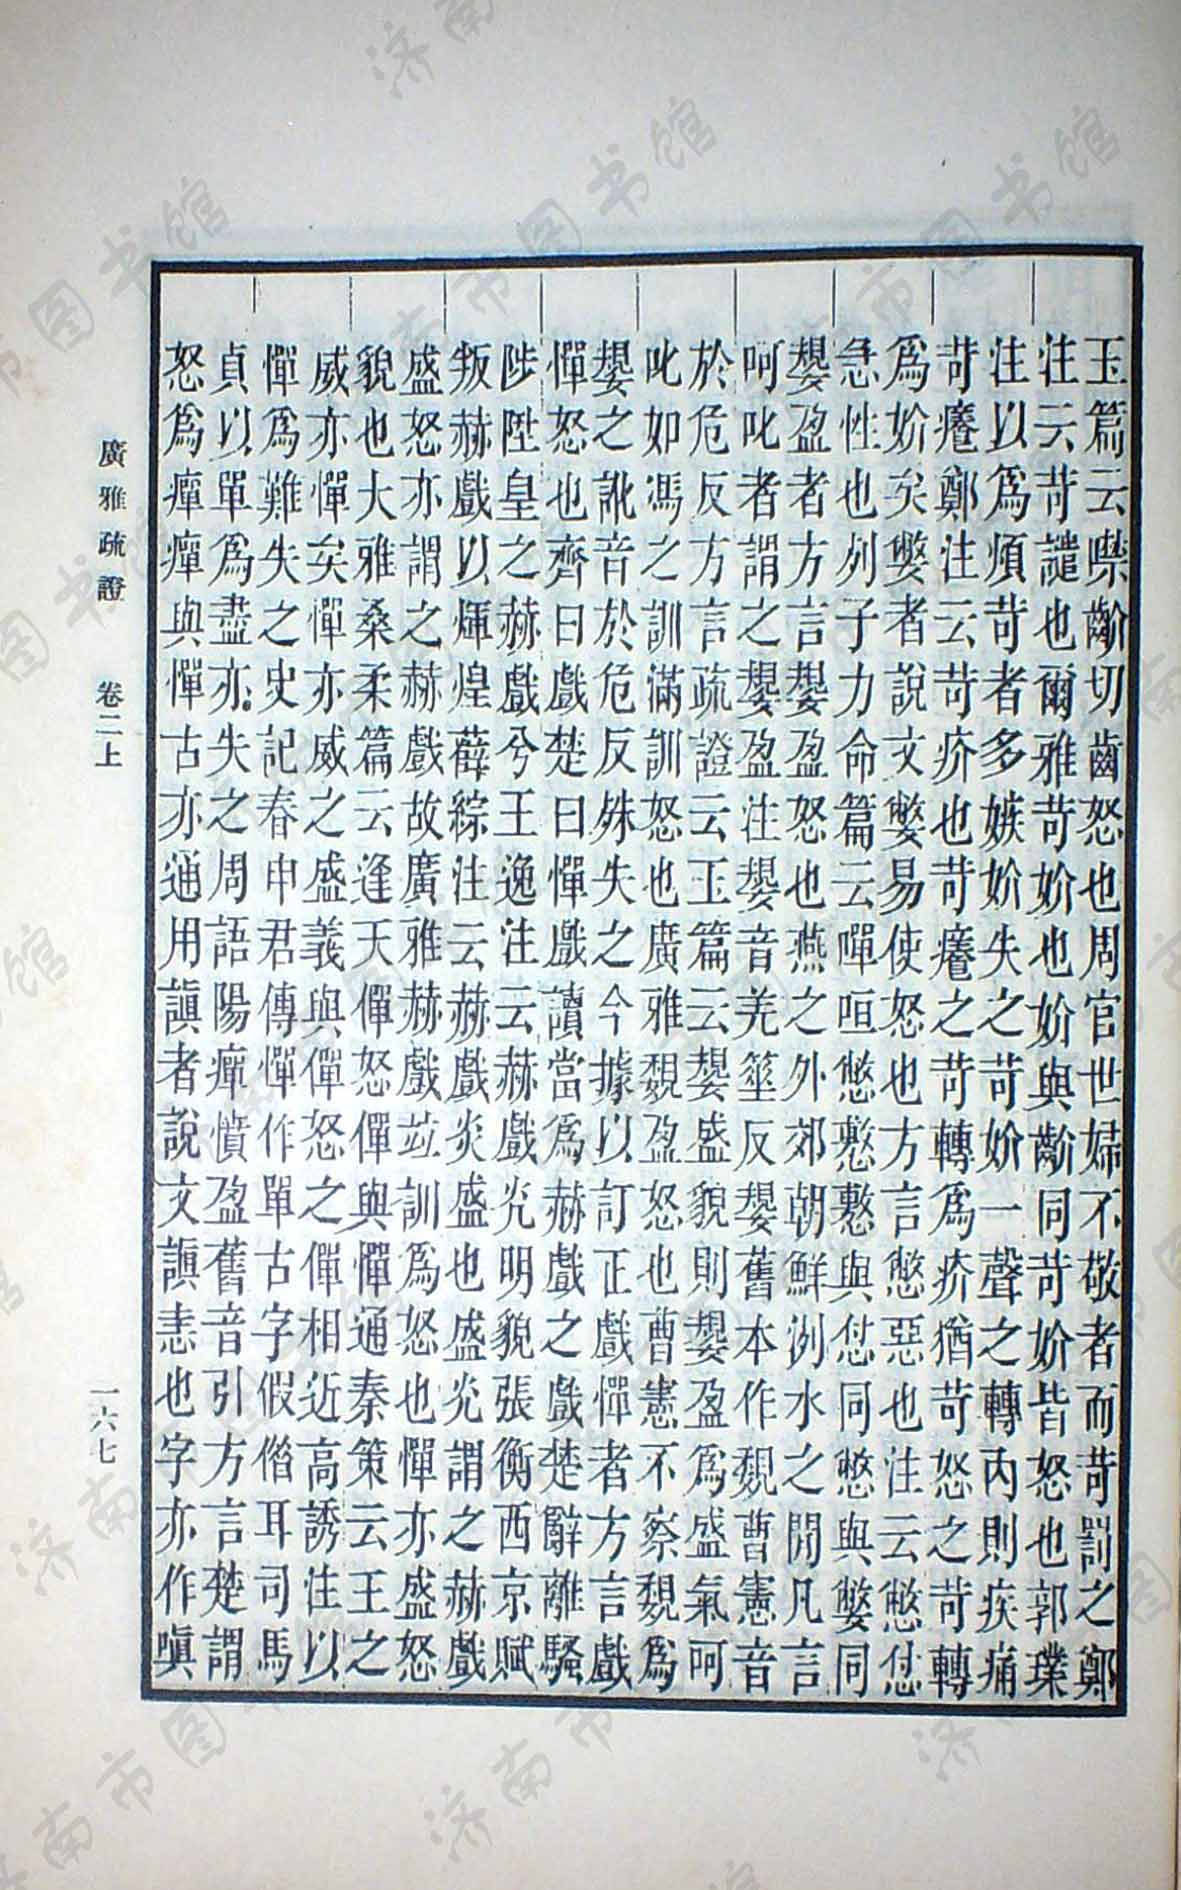 玉篇云㗫齘切齒怒也周官世婦不敬者而苛罰之鄭
注云苛譴也爾雅苛妎也妎與齘同苛妎皆怒也郭璞
注以爲煩苛者多嫉妎失之苛妎一聲之轉內則疾痛
苛癢鄭注云苛疥也苛癢之苛轉爲疥猶苛怒之苛轉
爲妎矣嫳者說文嫳易使怒也方言憋惡也注云憋怤
急性也列子力命篇云嘽咺憋懯懯與怤同憋與嫳同
㜝盈者方言㜝盈怒也燕之外郊朝鮮洌水之閒凡言
呵叱者謂之㜝盈注㜝音羌箠反㜝舊本作䙹曹憲音
於危反方言疏證云玉篇云㜝盛貌則㜝盈爲盛氣呵
叱如馮之訓滿訓怒也廣雅䙹盈怒也曹憲不察䙹爲
㜝之訛音於危反殊失之今據以訂正戲憚者方言戲
憚怒也齊曰戲楚曰憚戲讀當爲赫戲之戲楚辭離騷
陟陞皇之赫戲兮王逸注云赫戲光明貌張衡西京賦
叛赫戲以煇煌薛綜注云赫戲炎盛也盛光謂之赫戲
盛怒亦謂之赫戲故廣雅赫戲竝訓爲怒也憚亦盛怒
貌也大雅桑柔篇云逢天僤怒僤與憚通秦策云王之
威亦憚矣憚亦威之盛義與僤怒之僤相近高誘注以
憚爲難失之史記春申君傳憚作單古字假偺耳司馬
貞以單爲盡亦失之周語陽癉憤盈舊音引方言楚謂
怒爲癉癉與憚古亦通用謓者說文謓恚也字亦作嗔
廣雅疏證 卷二上 一六七